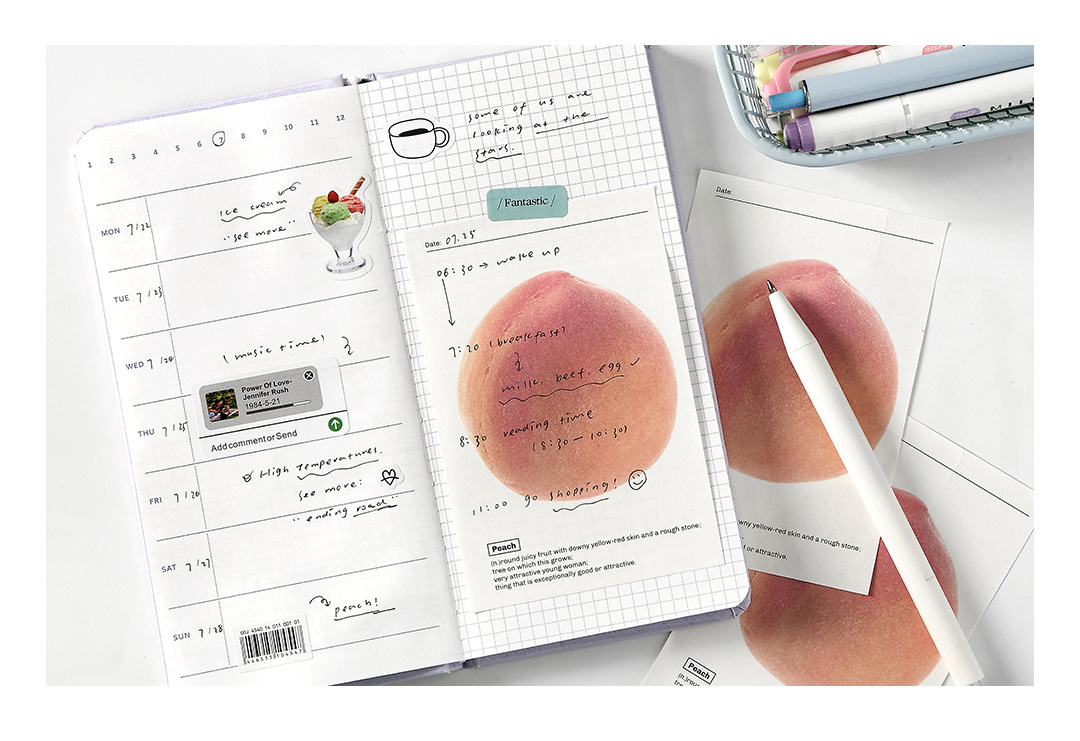 1 2 3 4 5 6 7 8 9 10 11 12
MON 7/22
Ice cream
"see more"
TUE 7/23
WED 7/24
(music time)
Power Of Love-
Jennifer Rush
1984-5-21
THU 7/25
Add comment or Send
High Temperatures.
FRI 7/26
see more:
"ending road"
SAT 7/27
peach!
SUN 7/28
some of us are
looking at the
stars.
/ Fantastic /
Date: 07.25
06:30 → wake up
7:20 (breakfast)
milk. beef. egg ✓
8:30 reading time
(8:30 — 10:30)
11:00 go shopping!
Peach
(n.)round juicy fruit with downy yellow-red skin and a rough stone:
tree on which this grows;
very attractive young woman:
thing that is exceptionally good or attractive.
Date:
wny yellow-red skin and a rough stone:
or attractive.
Peach
(n.)roun
tre